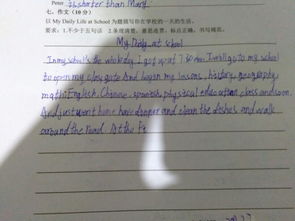 Peter is shorter than Mary.
七、作文(10分)
以 My Daily Life at School 为题描写你在学校的一天的生活。
要求：1.不少于五句话 2.条理清楚，意思连贯，标点正确，书写规范。
My Daily at school
In my school's the I got up at to my school
to open my class And began my lessons, history, geography
math, English, Chinese, spanish, physical education class and soon.
And just went home have danper and clean the dishes and walk
around the road. At the